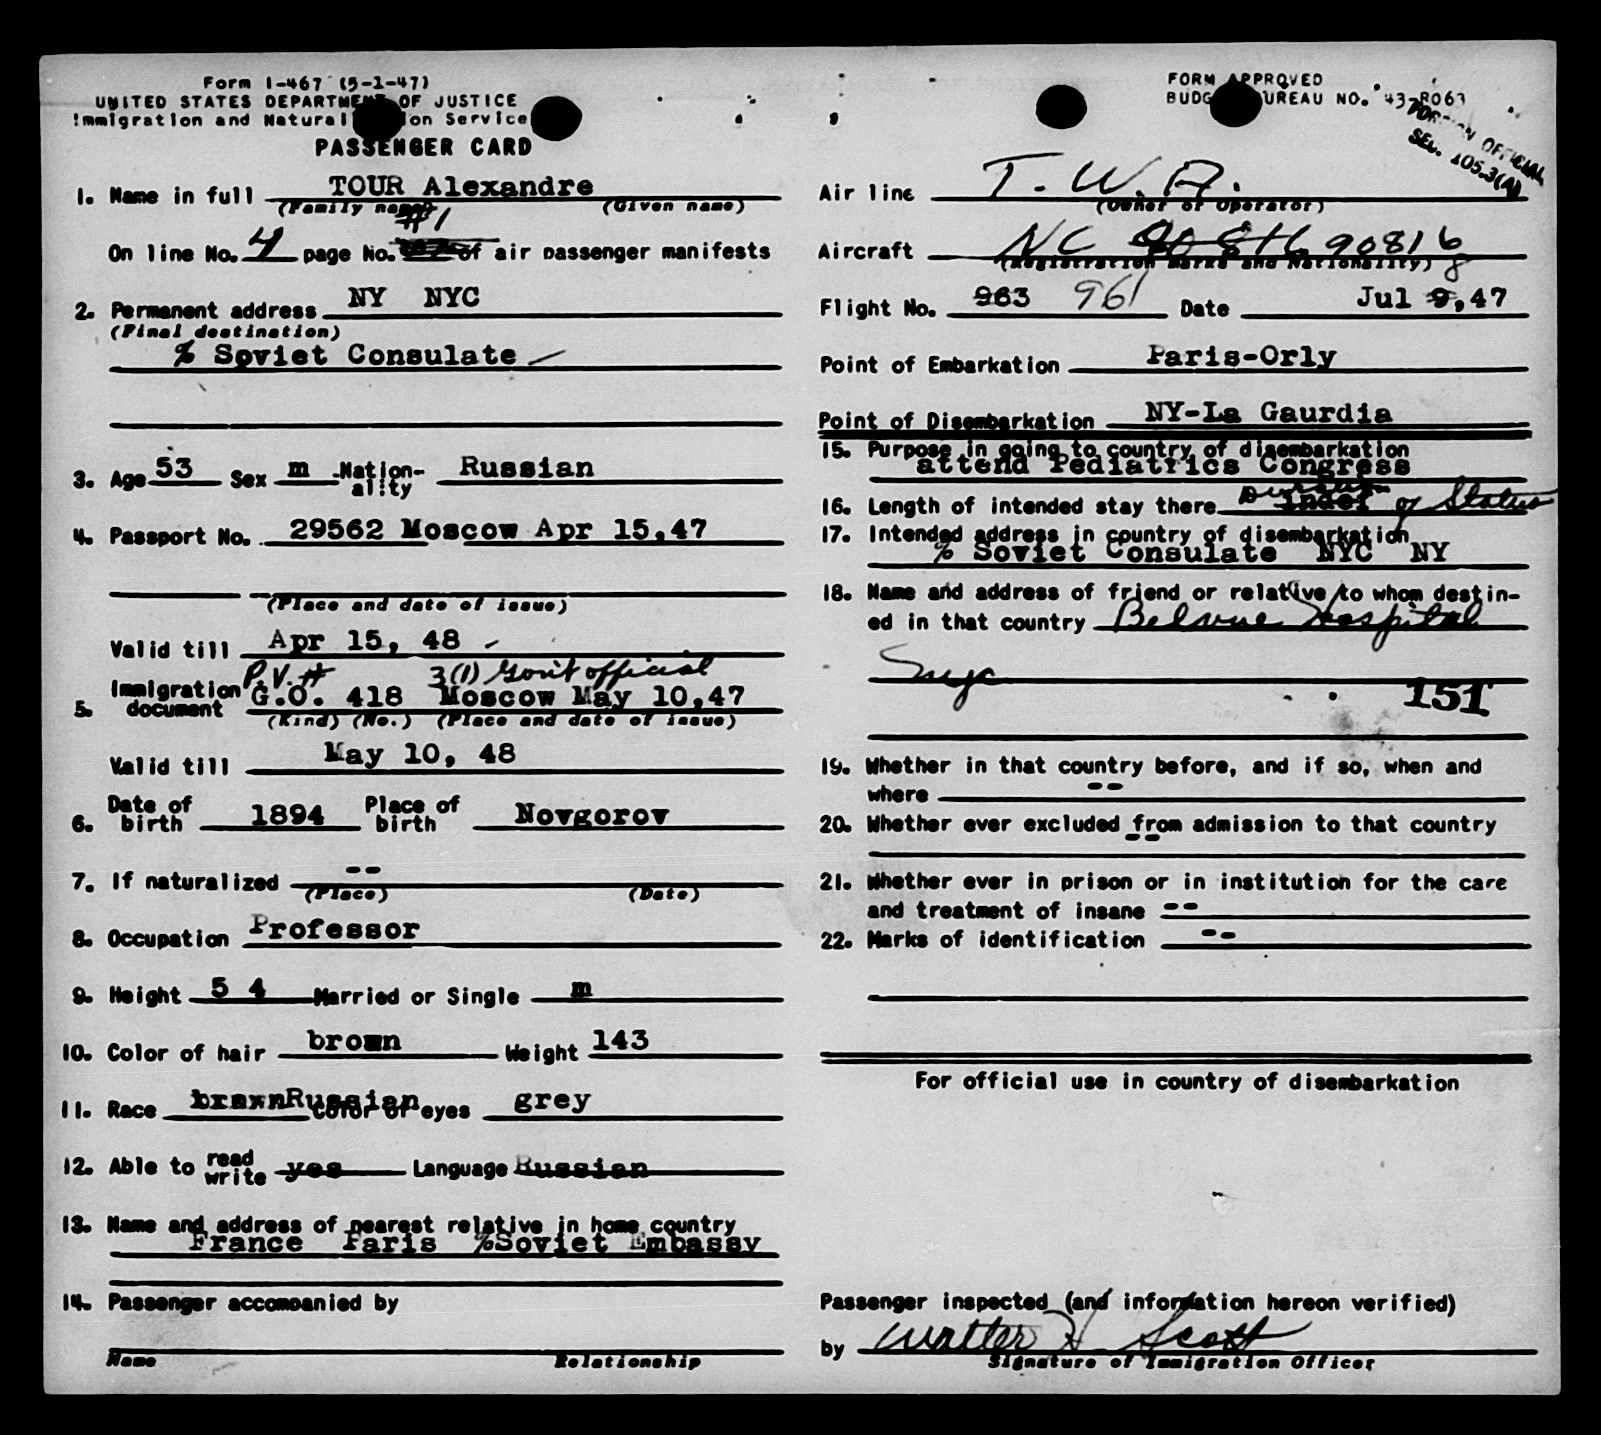 Form I-467 (5-1-47)
UNITED STATES DEPARTMENT OF JUSTICE
Immigration and Naturalization Service
PASSENGER CARD
1. Name in full TOUR Alexandre
(Family name) (Given name)
#1
On line No. 4 page No. of air passenger manifests
2. Permanent address NY NYC
(Final destination)
% Soviet Consulate
3. Age 53 Sex m Nation-ality Russian
4. Passport No. 29562 Moscow Apr 15,47
(Place and date of issue)
Valid till Apr 15, 48
P.V. # 3(1) Gov't official
5. Immigration document G.O. 418 Moscow May 10,47
(Kind) (No.) (Place and date of issue)
Valid till May 10, 48
6. Date of birth 1894 Place of birth Novgorov
7. If naturalized --
(Place) (Date)
8. Occupation Professor
9. Height 5 4 Married or Single m
10. Color of hair brown Weight 143
11. Race Russian Color of eyes grey
12. Able to read write yes Language Russian
13. Name and address of nearest relative in home country
France Paris %Soviet Embassy
14. Passenger accompanied by
Name Relationship
FORM APPROVED
BUDGET BUREAU NO. 43-R063
FOREIGN OFFICIAL
SEC. 105.3(A)
Air line T.W.A.
(Owner or Operator)
Aircraft NC 90816
(Registration marks and Nationality)
8
Flight No. 963 961 Date Jul 9,47
Point of Embarkation Paris-Orly
Point of Disembarkation NY-La Gaurdia
15. Purpose in going to country of disembarkation
attend Pediatrics Congress
16. Length of intended stay there Duration indef of Status
17. Intended address in country of disembarkation
% Soviet Consulate NYC NY
18. Name and address of friend or relative to whom destin-
ed in that country Belvue Hospital
nyc
151
19. Whether in that country before, and if so, when and
where --
20. Whether ever excluded from admission to that country
--
21. Whether ever in prison or in institution for the care
and treatment of insane --
22. Marks of identification --
For official use in country of disembarkation
Passenger inspected (and information hereon verified)
by Walter H Scott
Signature of Immigration Officer